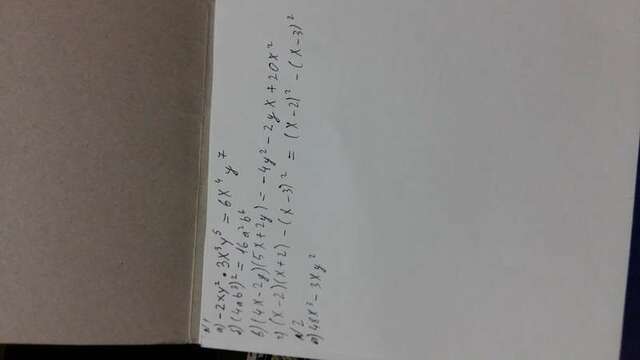 N1
а) -2xy² • 3x³y⁵ = 6x⁴y⁷
б) (4ab³)² = 16a²b⁶
в) (4x-2y)(5x+2y) = -4y² - 2yx + 20x²
г) (x-2)(x+2) - (x-3)² = (x-2)² - (x-3)²
N2
а) 48x³ - 3xy²